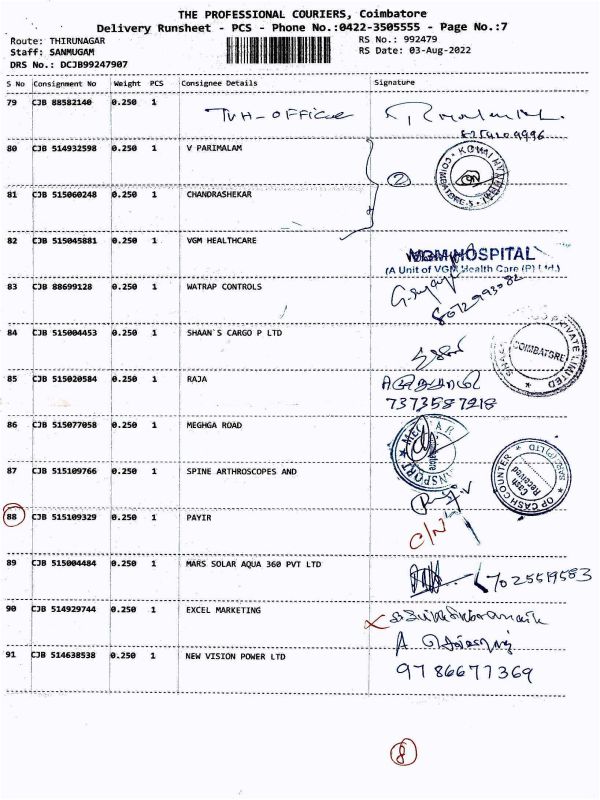 THE PROFESSIONAL COURIERS, Coimbatore
Delivery Runsheet - PCS - Phone No.:0422-3505555 - Page No.:7
Route: THIRUNAGAR
RS No.: 992479
Staff: SANMUGAM
RS Date: 03-Aug-2022
DRS No.: DCJB99247907
S No Consignment No Weight PCS Consignee Details Signature
79 CJB 88582140 0.250 1 TVH-OFFICE
80 CJB 514932598 0.250 1 V PARIMALAM
2
81 CJB 515060248 0.250 1 CHANDRASHEKAR
82 CJB 515045881 0.250 1 VGM HEALTHCARE
VGM HOSPITAL
(A Unit of VGM Health Care (P) Ltd.)
83 CJB 88699128 0.250 1 WATRAP CONTROLS
8012993082
84 CJB 515004453 0.250 1 SHAAN`S CARGO P LTD
COIMBATORE
PRIVATE LIMITED
85 CJB 515020584 0.250 1 RAJA
7373587218
86 CJB 515077058 0.250 1 MEGHGA ROAD
87 CJB 515109766 0.250 1 SPINE ARTHROSCOPES AND
OP CASH COUNTER
Cash Received
88 CJB 515109329 0.250 1 PAYIR
C/N
89 CJB 515004484 0.250 1 MARS SOLAR AQUA 360 PVT LTD
7025519583
90 CJB 514929744 0.250 1 EXCEL MARKETING
91 CJB 514638538 0.250 1 NEW VISION POWER LTD
9786677369
8